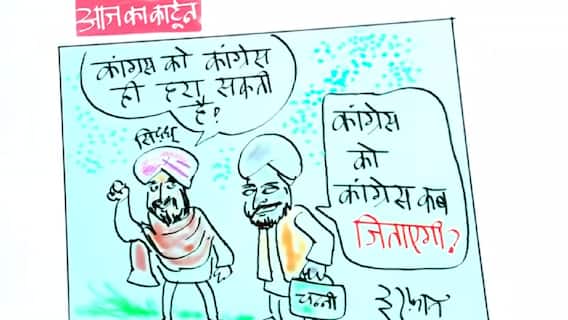 आज का कार्टून
कांग्रेस को कांग्रेस
ही हरा सकती
है?
सिद्धू
कांग्रेस
को
कांग्रेस कब
जिताएगी?
चन्नी
इरफ़ान